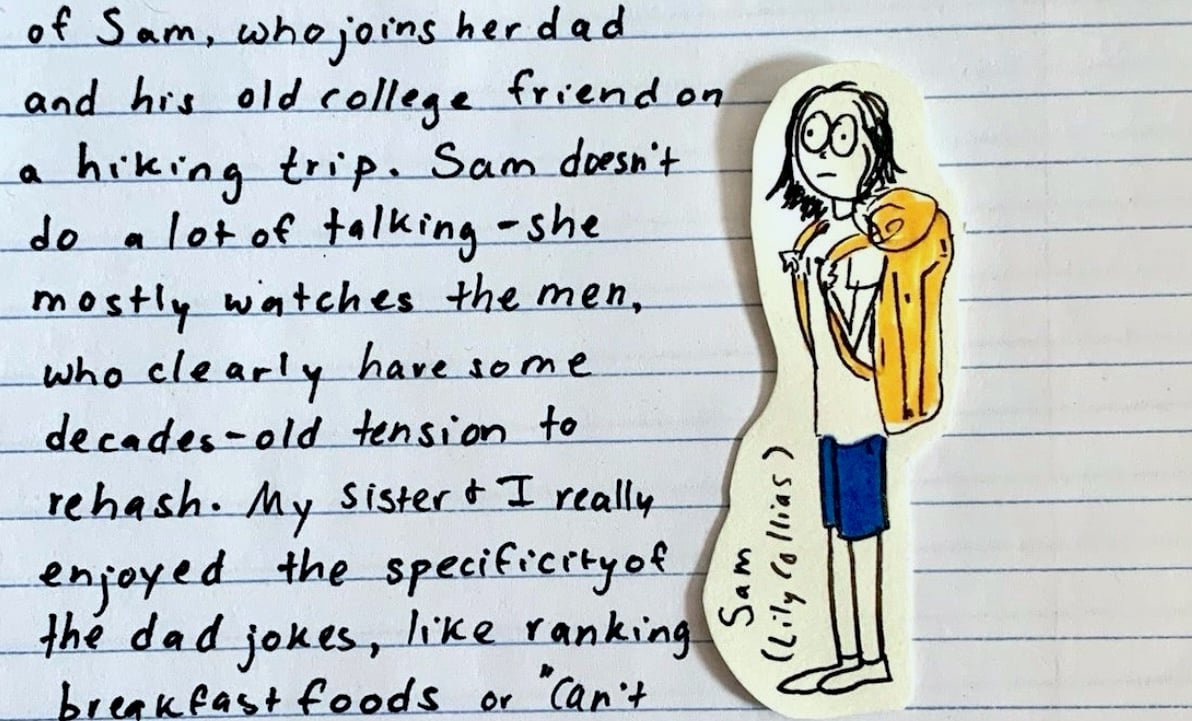 of Sam, who joins her dad
and his old college friend on
a hiking trip. Sam doesn't
do a lot of talking - she
mostly watches the men,
who clearly have some
decades-old tension to
rehash. My sister + I really
enjoyed the specificity of
the dad jokes, like ranking
breakfast foods or "Can't
Sam
(Lily Collias)